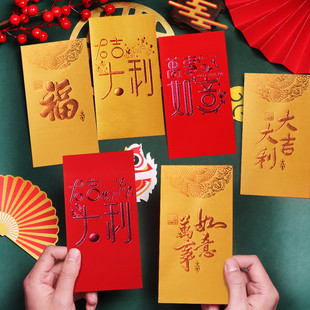 福
大吉
大利
萬事
如意
大吉
大利
大吉
大利
如意
萬事